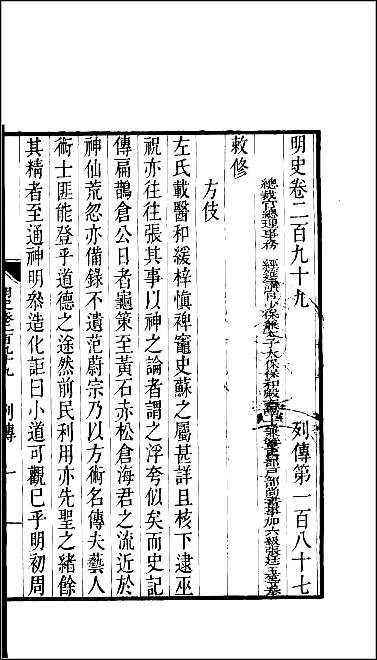 明史卷二百九十九　列傳第一百八十七
總裁官總理事務　經筵講官少保兼太子太保保和殿大學士兼管吏部戶部尚書事加六級張廷玉等奉
敕修
方伎
左氏載醫和緩梓慎裨竈史蘇之屬甚詳且核下逮巫
祝亦往往張其事以神之論者謂之浮夸似矣而史記
傳扁鵲倉公日者龜策至黃石赤松倉海君之流近於
神仙荒忽亦備錄不遺范蔚宗乃以方術名傳夫藝人
術士匪能登乎道德之途然前民利用亦先聖之緒餘
其精者至通神明參造化詎曰小道可觀已乎明初周
明史卷二百九十九　列傳　一